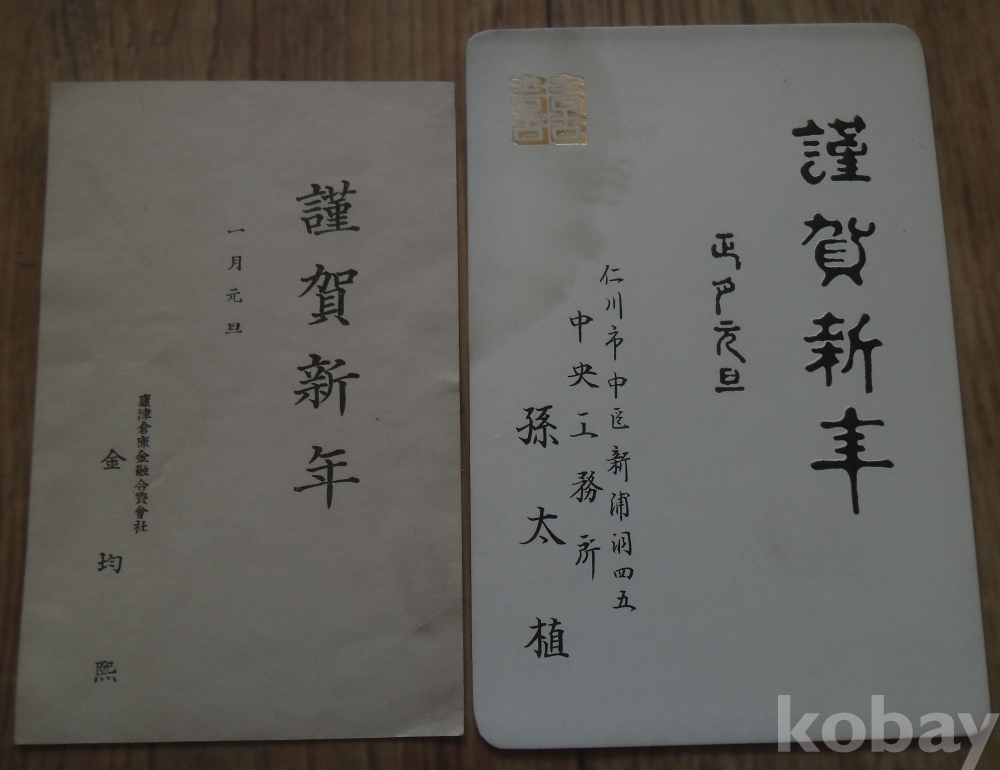 謹賀新年
一月元旦
康津倉庫金融合資會社
金均熙
囍
謹賀新年
正月元旦
仁川市中区新浦洞四五
中央工務所
孫太植
kobay